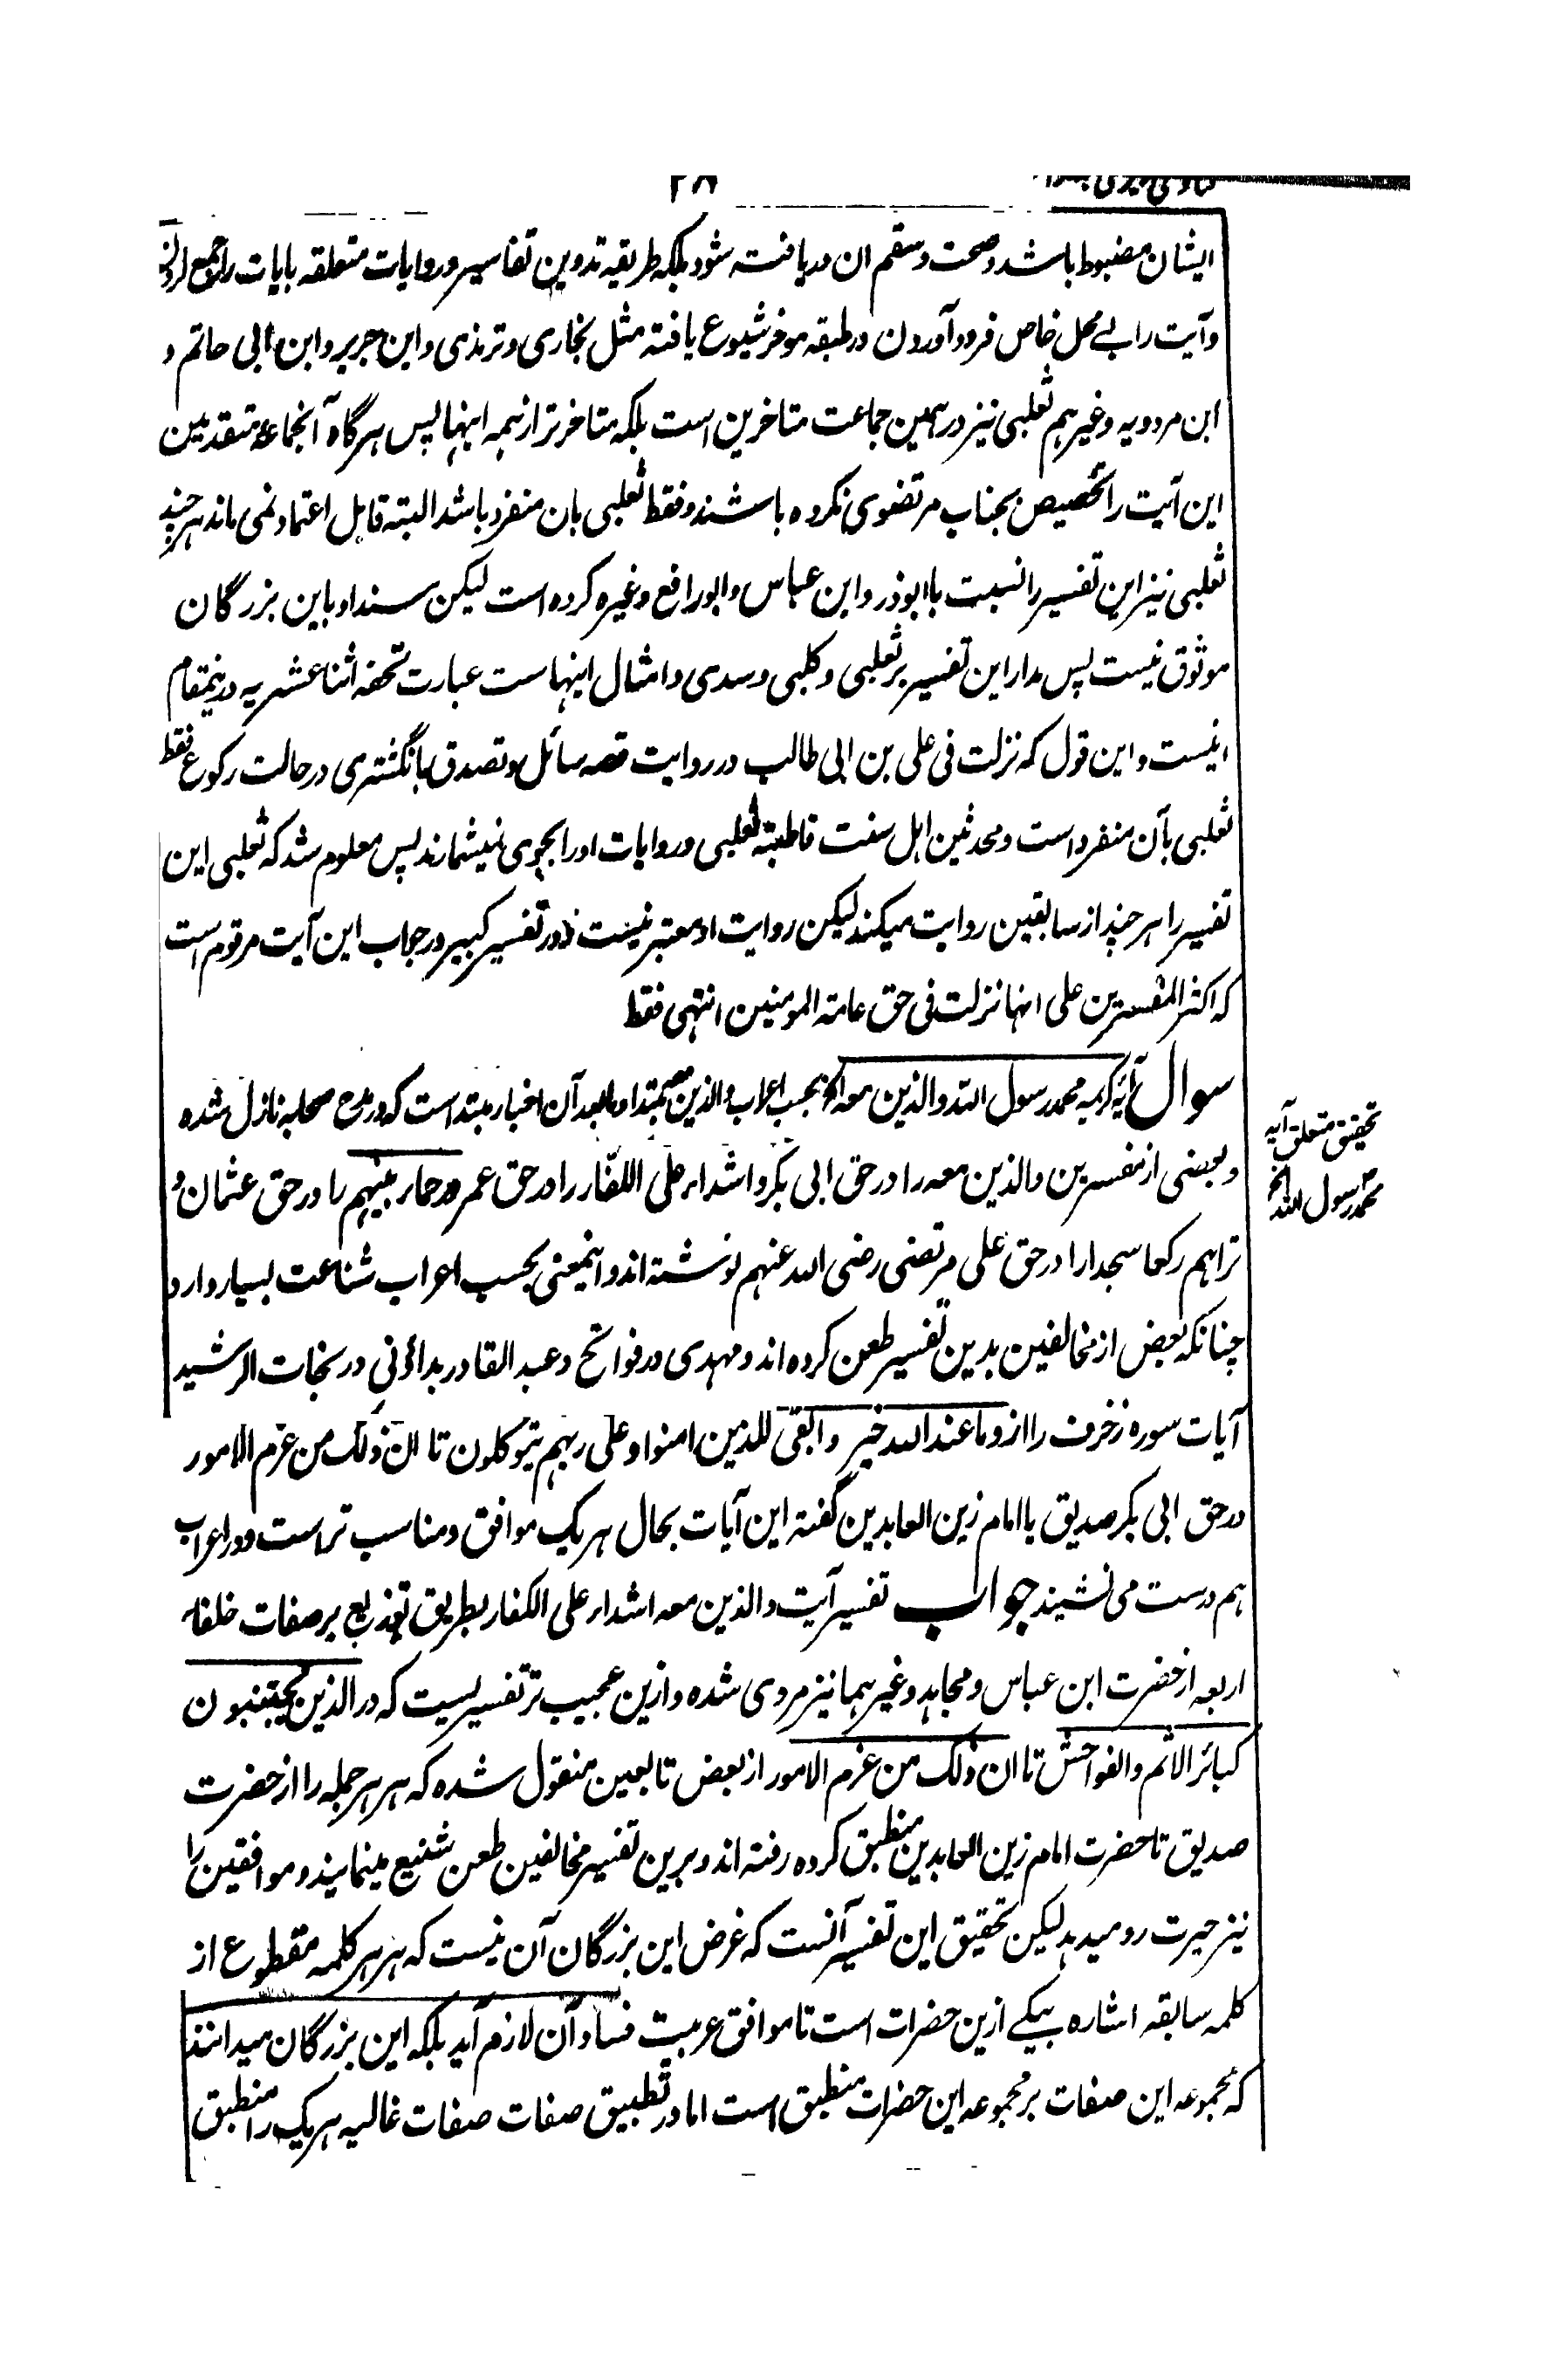 ۲۸
ایشان مضبوط باشد و صحت و سقم ان دریافته شود بلکه طریقه تدوین تفاسیر و روایات متعلقه بایات را جمع
و آیت را بے محل خاص فرود آوردن در طبقه موخر شیوع یافته مثل بخاری و ترمذی و ابن جریر و ابن ابی حاتم و
ابن مردویه و غیرہم ثعلبی نیز در ہمین جماعت متاخرین است بلکه متاخر تر از ہمه اینہا پس ہرگاه آنجماعۀ متقدمین
این آیت را تخصیص بجناب مرتضوی نکرده باشند و فقط ثعلبی بان منفرد باشد البته قابل اعتماد نمی ماند ہر چند
ثعلبی نیز این تفسیر را نسبت با ابوذر و ابن عباس و ابو رافع و غیره کرده است لیکن سند او باین بزرگان
موثوق نیست پس مدار این تفسیر بر ثعلبی و کلبی و سدی و امثال اینہاست عبارت تحفه اثنا عشریه درینمقام
اینست و این قول که نزلت فی علی بن ابی طالب در روایت قصه سائل و تصدق بانگشتری در حالت رکوع فقط
ثعلبی بآن منفرد است و محدثین اہل سنت قاطبتہ ثعلبی و روایات او را بجوی نمیشمارند پس معلوم شد که ثعلبی این
تفسیر را ہر چند از سابقین روایت میکند لیکن روایت او معتبر نیست و در تفسیر کبیر در جواب این آیت مرقوم است
که اکثر المفسرین علی انہا نزلت فی حق عامتہ المومنین انتہی فقط
سوال آیۂ کریمه محمد رسول اللہ والذین معه الخ بحسب اعراب والذین معه مبتدا و مابعد آن اخبار مبتدا ست که در مدح صحابه نازل شده
و بعضی از مفسرین والذین معه را در حق ابی بکر و اشداء علی الکفار را در حق عمر و رحماء بینہم را در حق عثمان و
تراہم رکعا سجدا را در حق علی مرتضی رضی اللہ عنہم نوشته اند و اینمعنی بحسب اعراب شناعت بسیار دارد
چنانکه بعض از مخالفین بدین تفسیر طعن کرده اند و مہدی در فواتح و عبد القادر بداؤنی در نجات الرشید
آیات سوره زخرف را از و ما عند اللہ خیر و ابقی للذین امنوا و علی ربہم یتوکلون تا ان ذلک من عزم الامور
در حق ابی بکر صدیق یا امام زین العابدین گفته این آیات بحال ہر یک موافق و مناسب تر است و در اعراب
ہم درست می نشیند جواب تفسیر آیت والذین معه اشداء علی الکفار بطریق توزیع بر صفات خلفاء
اربعه از حضرت ابن عباس و مجاہد و غیرہما نیز مروی شده و ازین عجیب تر تفسیریست که در الذین یجتنبون
کبائر الاثم و الفواحش تا ان ذلک من عزم الامور از بعض تابعین منقول شده که ہر ہر جمله را از حضرت
صدیق تا حضرت امام زین العابدین منطبق کرده رفته اند و برین تفسیر مخالفین طعن شنیع مینمایند و موافقین را
نیز حیرت رو میدہد لیکن تحقیق این تفسیر آنست که غرض این بزرگان آن نیست که ہر ہر کلمه مقطوع از
کلمه سابقه اشاره بیکے ازین حضرات است تا موافق عربیت فساد آن لازم آید بلکه این بزرگان میدانند
که مجموعه این صفات بر مجموعه این حضرات منطبق است اما در تطبیق صفات صفات غالیه ہر یک را منطبق
تحقیق متعلق آیه
محمد رسول اللہ الخ